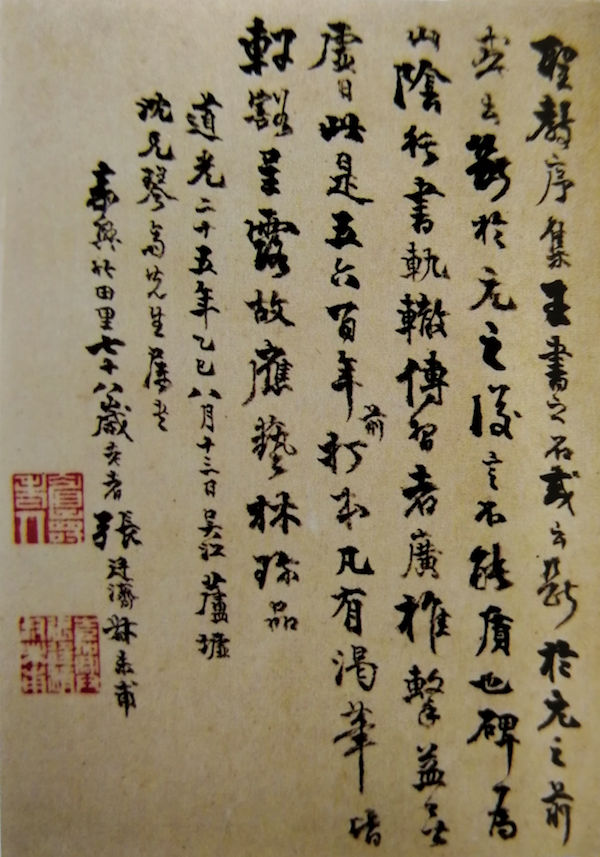 聖教序集王書之石或云斷於元之前
或云斷於元之後言不能質也碑為
山陰行書軌轍傳習者廣椎擊益無
虛日此是五六百年前打本凡有渴筆皆
軒豁呈露故應藝林珍品
道光二十五年乙巳八月十三日吳江蘆墟
沈兄琴先生屬
嘉興竹田里七十八歲者張廷濟叔未甫